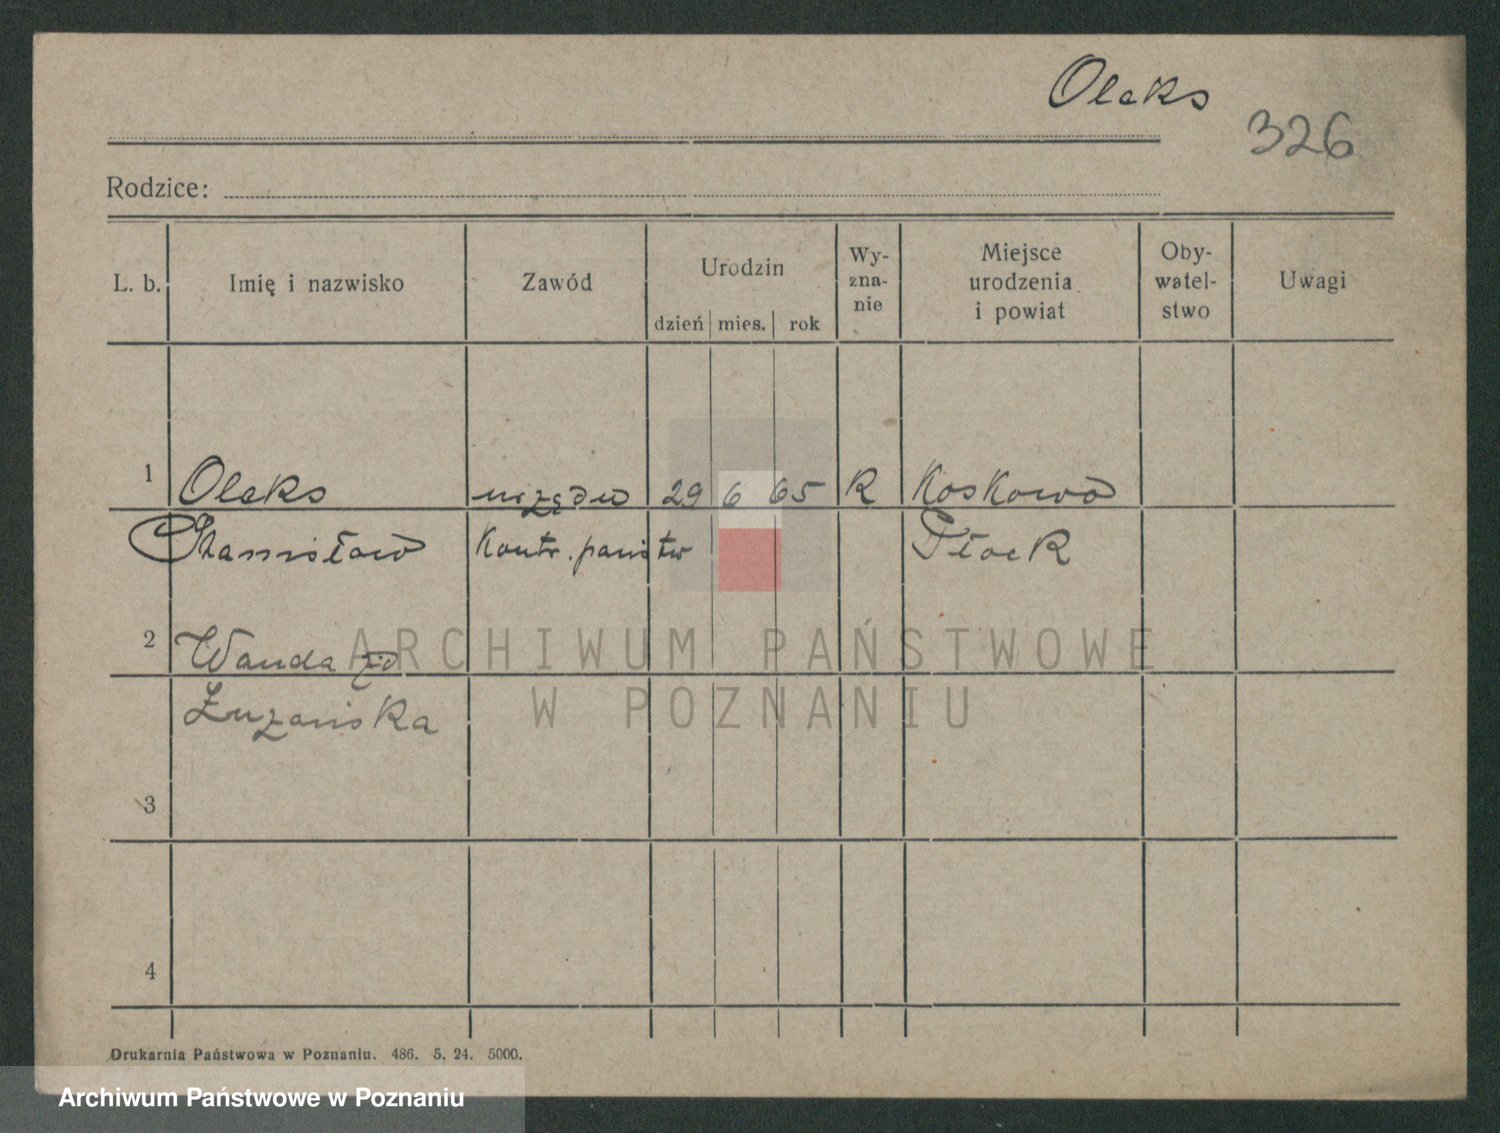 Oleks
326
Rodzice:
L. b. Imię i nazwisko Zawód Urodzin Wy-zna-nie Miejsce urodzenia i powiat Oby-watel-stwo Uwagi
dzień mies. rok
1 Oleks urzędn 29 6 65 R Koskowo
Stanisław Kontr. państw Płock
2 Wanda zd
Łuzańska
3
4
Drukarnia Państwowa w Poznaniu. 486. 5. 24. 5000.
ARCHIWUM PAŃSTWOWE
W POZNANIU
Archiwum Państwowe w Poznaniu